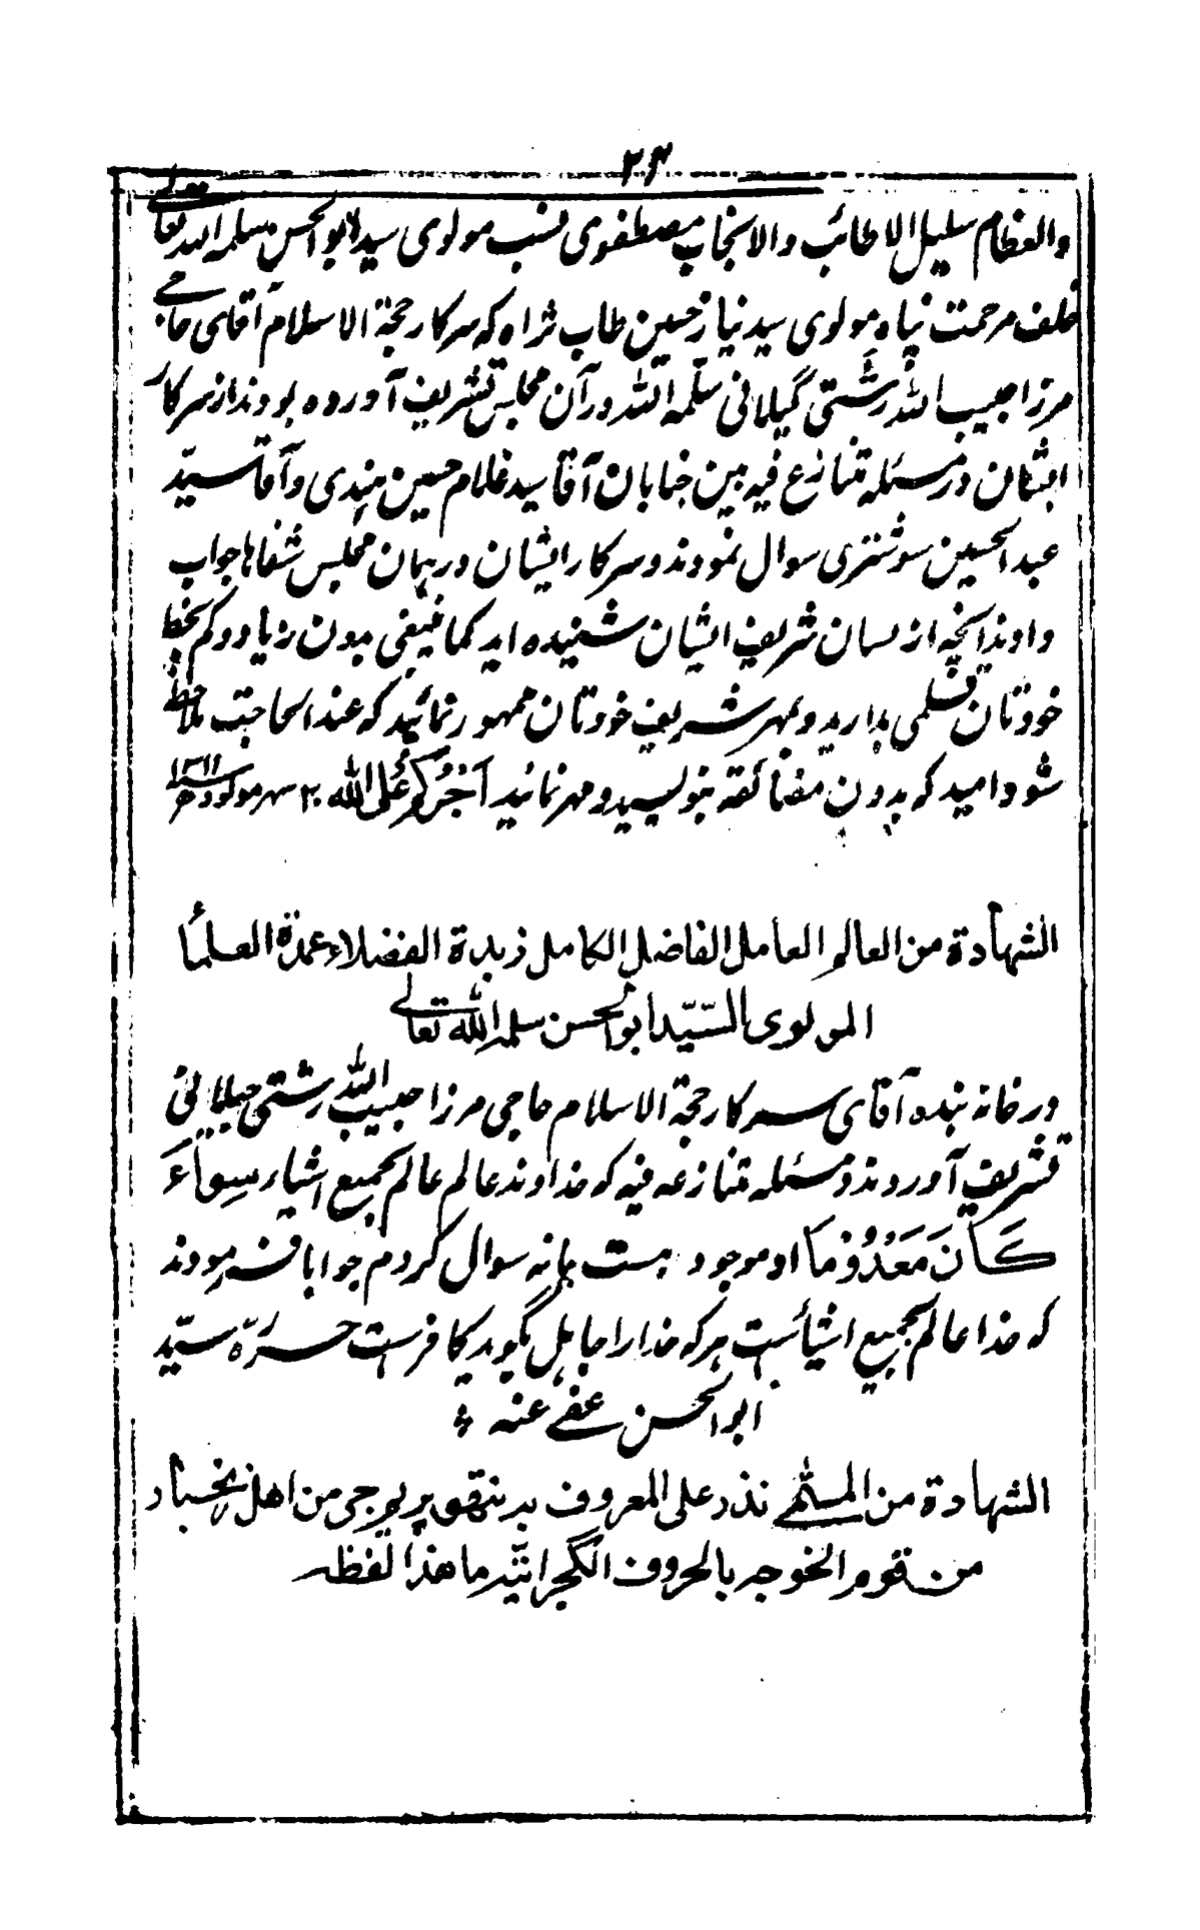 ۲۴
والعظام سلیل الاطائب والانجاب مصطفوی نسب مولوی سید ابوالحسن سلمه الله تعالی
خلف مرحمت پناه مولوی سید نیاز حسین طاب ثراه که سرکار حجة الاسلام آقای حاجی
مرزا حبیب الله رشتی گیلانی سلّمه الله درآن مجلس تشریف آورده بودند از سرکار
ایشان در مسئله متنازع فیه بین جنابان آقا سید غلام حسین هندی و آقا سیّد
عبد الحسین سوشتری سوال نمودند و سرکار ایشان در همان مجلس شفاها جواب
دادند انچه از لسان شریف ایشان شنیده اید کما ینبغی بدون زیاد و کم بخط
خودتان قلمی بدارید و بمهر شریف خودتان ممهور نمائید که عند الحاجت ملاحظه
شود امید که بدون مضائقه بنویسید و مهر نمائید اَجْرُکُم عَلَی الله ۲۰ شهر مولود ۱۳۱۱ هـ
الشهادة من العالم العامل الفاضل الکامل زبدة الفضلاء عمدة العلمأ
المولوی السّیّد ابوالحسن سلمه الله تعالی
در خانه بنده آقای سرکار حجة الاسلام حاجی مرزا حبیب الله رشتی جیلانی
تشریف آوردند و مسئله متنازعه فیه که خداوند عالم عالم بجمیع اشیاء سِواءَ
کَانَ مَعْدُوْمًا او موجود هست یا نه سوال کردم جوابا فرمودند
که خدا عالم بجمیع اشیأست هرکه خدا را جاهل بگوید کافرست حرّره سیّد
ابوالحسن عفی عنه
الشهادة من المسمّی نذر علی المعروف بدینتهو پریوجی من اهل
من قوم الخوجه بالحروف الگجراتیّه ما هذا لفظه